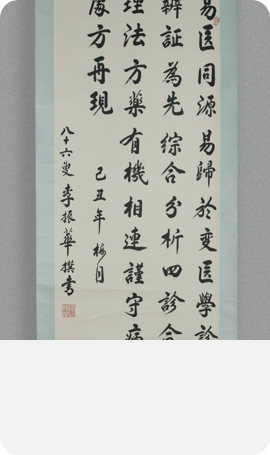 易医同源易歸於变医學診
辨証為先綜合分析四診合
理法方藥有機相連謹守病
方再現
己丑年梅月
八十六叟李振華撰書